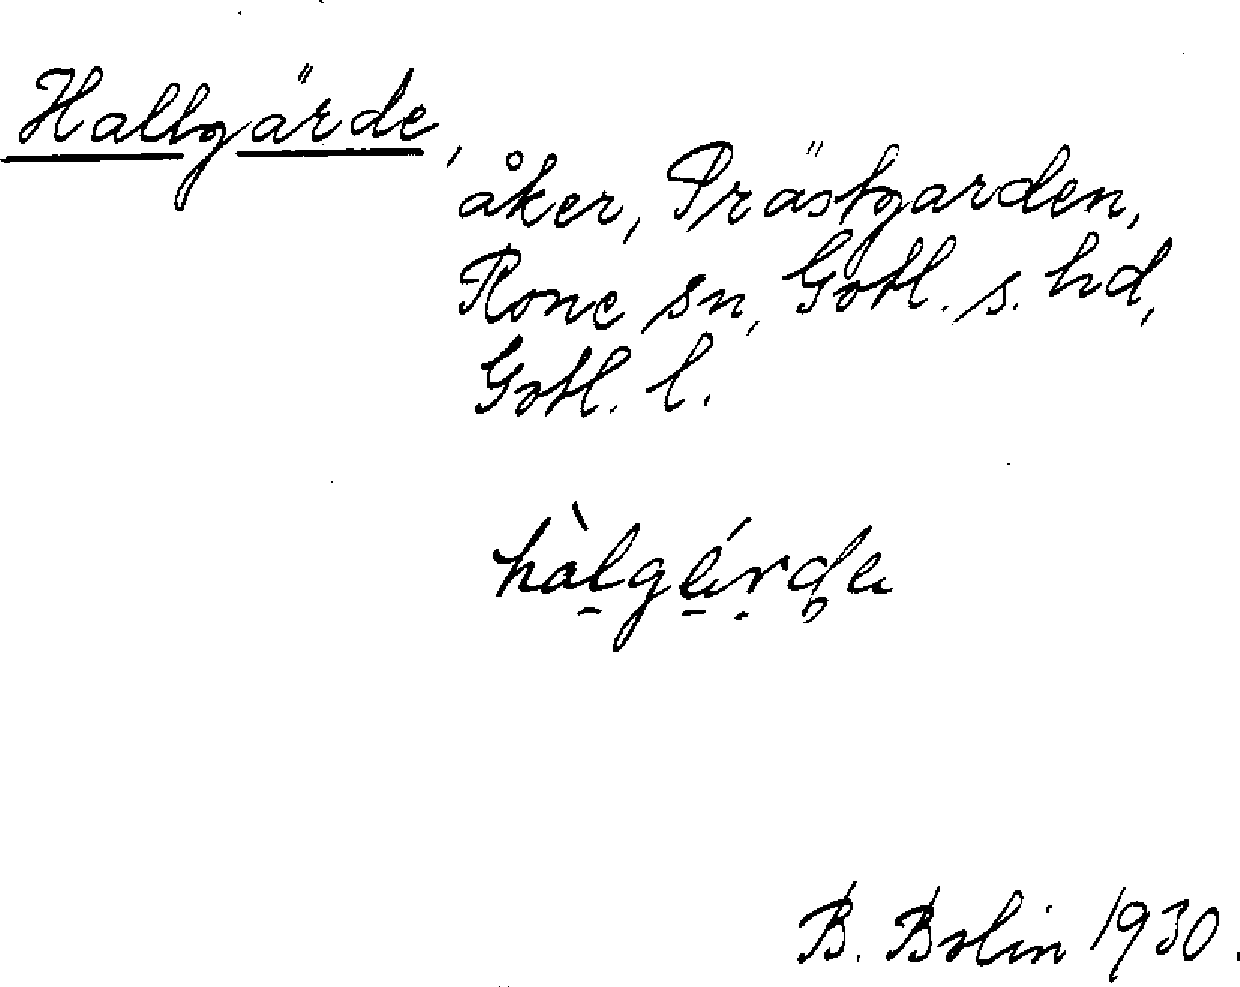 Hallgärde,
åker, Prästgarden,
Rone sn, Gotl. s. hd,
Gotl. l.
B. Bolin 1930.